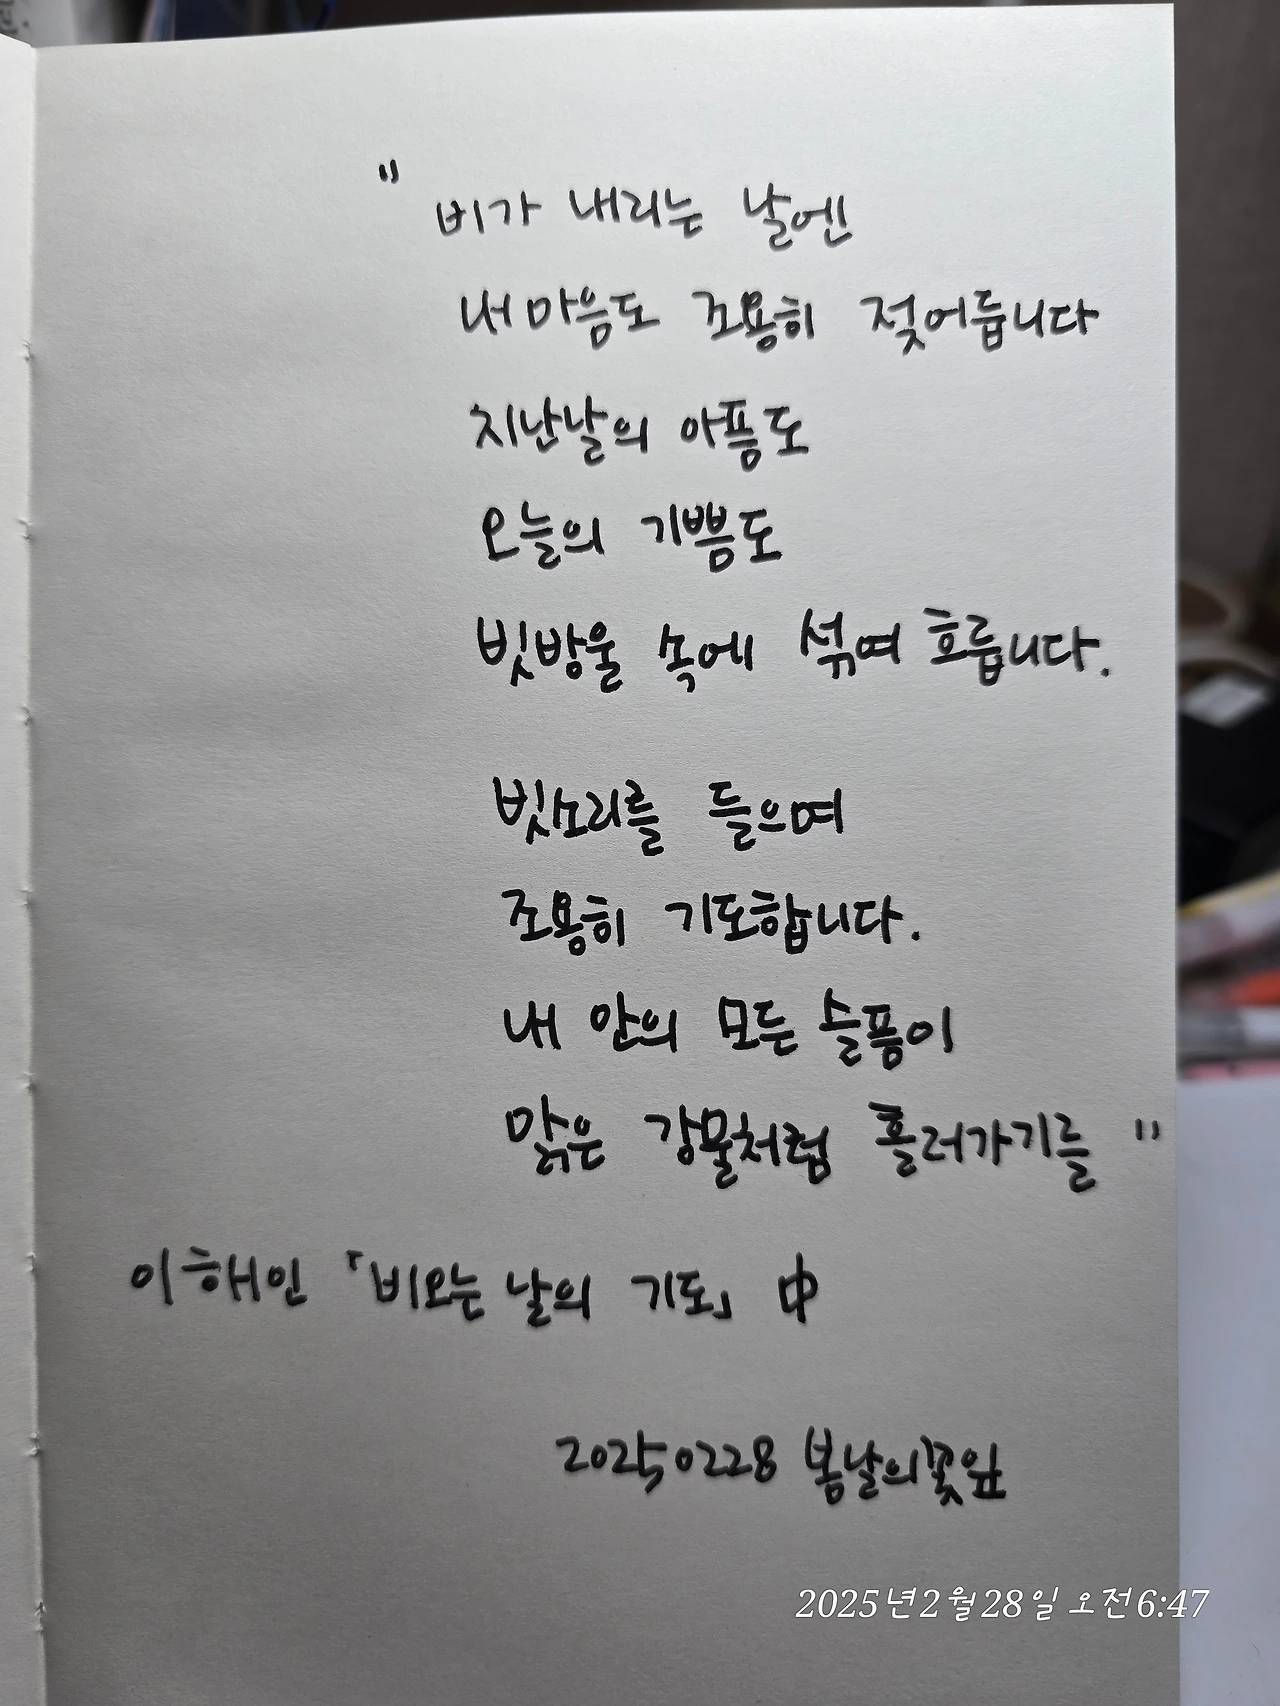 "비가 내리는 날엔
내 마음도 조용히 젖어듭니다
지난날의 아픔도
오늘의 기쁨도
빗방울 속에 섞여 흐릅니다.
빗소리를 들으며
조용히 기도합니다.
내 안의 모든 슬픔이
맑은 강물처럼 흘러가기를"
이해인 「비오는 날의 기도」 中
20250228 봄날의꽃잎
2025년 2월 28일 오전 6:47